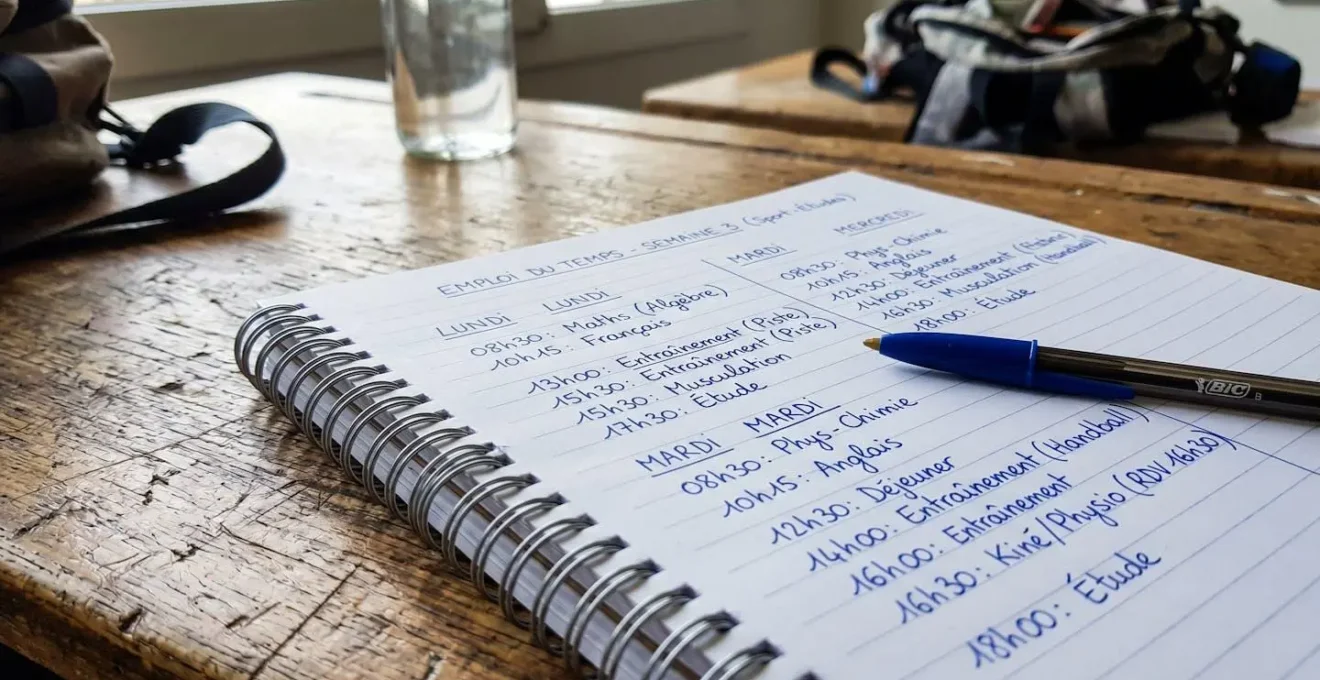 EMPLOI DU TEMPS - SEMAINE 3 (Sport-Études)
LUNDI LUNDI
08h30: Maths (Algèbre)
10h15: Français
13h00: Entraînement (Piste)
15h30: Entraînement (Piste)
15h30: Musculation
17h30: Étude
MARDI MARDI
08h30: Phys-Chimie
10h15: Anglais
12h30: Déjeuner
14h00: Entraînement (Handball)
16h00: Entraînement
16h30: Kiné/Physio (RDV 16h30)
18h00: Étude
MARDI MERCREDI
08h30: Phys-Chimie
10h15: Anglais
12h30: Déjeuner
14h00: Entraînement
16h30: Musculation (Handball)
18h00: Étude
BIC